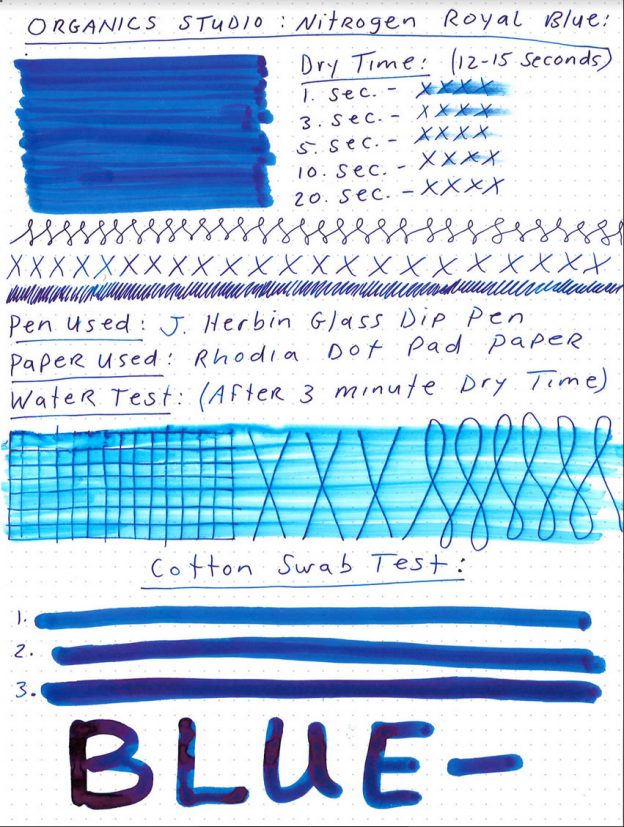 ORGANICS STUDIO: Nitrogen Royal Blue:
Dry Time: (12-15 Seconds)
1. sec. - XXXX
3. sec. - XXXX
5. sec. - XXXX
10. sec. - XXXX
20. sec. - XXXX
XXXXXXXXXXXXXXXXXXXXXX
Pen Used: J. Herbin Glass Dip Pen
Paper Used: Rhodia Dot Pad Paper
Water Test: (After 3 minute Dry Time)
XXX
Cotton Swab Test:
1.
2.
3.
BLUE-